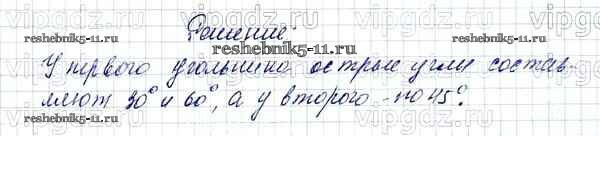 Решение.
У первого угольника острые углы состав-
ляют 30° и 60°, а у второго - по 45°.
reshebnik5-11.ru
reshebnik5-11.ru
reshebnik5-11.ru
reshebnik5-11.ru
reshebnik5-11.ru
vipgdz.com